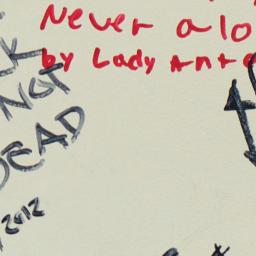 Never alo
by Lady Ante
NOT
DEAD
2012